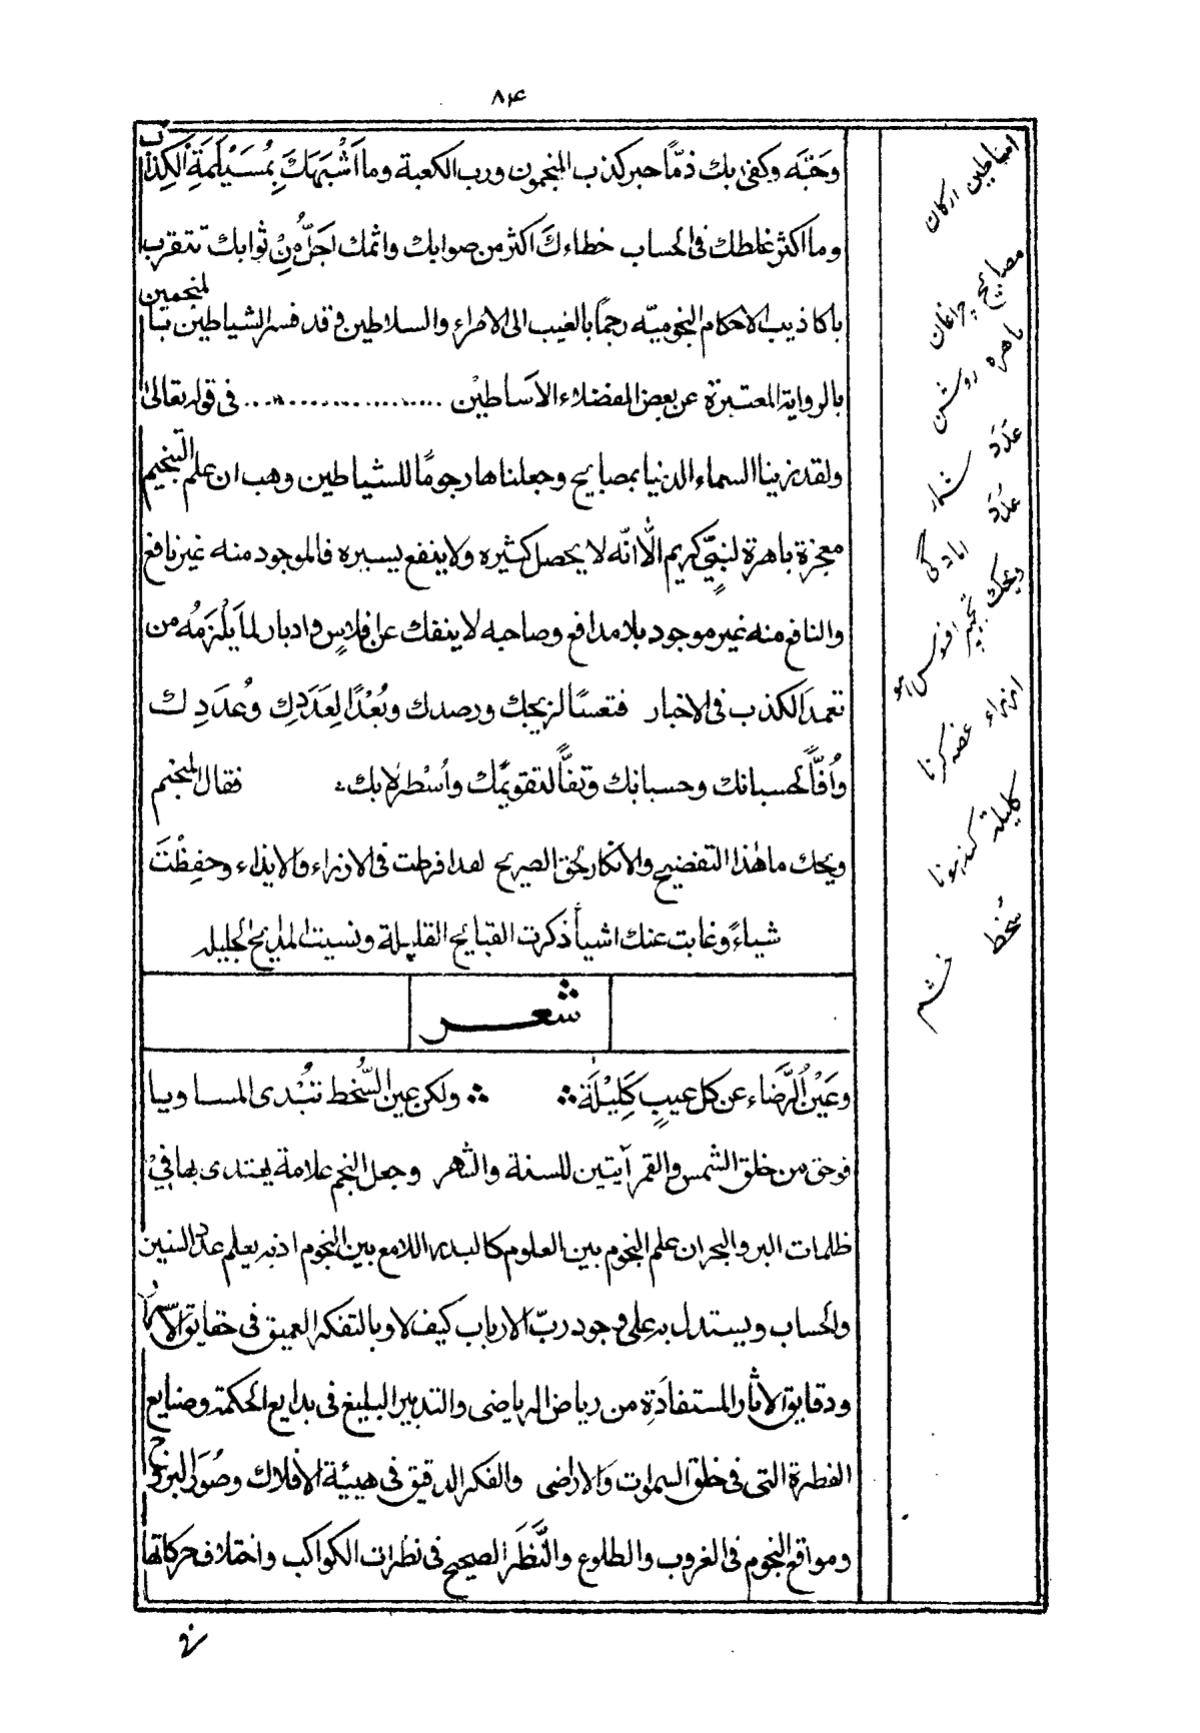 ۸۴
وحبّه وكفى بك ذمّا حبر كذب المنجمون ورب الكعبة وما اَشْبَهَكَ بِمُسَيْلَمَةِ الكِذّاب
وما اكثر غلطك فى الحساب خطاءك اكثر من صوابك واثمك اجَلُّ مِنْ ثوابك تتقرب
باكاذيب الاحكام النجوميّه رجمًا بالغيب الى الامراء والسلاطين وقد فسر الشياطين بالمنجمين
بالرواية المعتبرة عن بعض الفضلاء الاَساطيْن .................... فى قوله تعالىٰ
ولقد زينا السماء الدنيا بمصابيح وجعلناها رجومًا للشياطين وهب ان علم التنجيم
معجزة باهرة لنبىٍّ كريم الّا انّه لا يحصل كثيره ولا ينفع يسيره فالموجود منه غير نافع
والنافع منه غير موجود بلا مدافع وصاحبه لا ينفك عن افلاسٍ وادبار لما يَلْزَمُه من
تعمد الكذب فى الاخبار فتعسًا لزيجك ورصدك وبُعْدًا لِعَدَدِكَ وعُدَدِك
واُفًّا لحسبانك وحسبانك وتفًّا لتقويمك واُسْطرلابك فقال المنجم
ويحك ما هٰذا التفضيح والانكار لحق الصريح لقد افرطت فى الازراء والايذاء وحفِظْتَ
شياءً وغابت عنك اشيأ ذكرت القبايح القليلة ونسيت المديح الجليله
شعر
وعَيْنُ الرَّضَاء عن كل عيبٍ كَلِيْلَة ولكن عين السُّخط تُبْدى المساويا
فوحق من خلق الشمس والقمر آيتين للسنة والشهر وجعل النجم علامة يهتدى بها فِيْ
ظلمات البر والبحر ان علم النجوم بين العلوم كالبدر اللامع بين النجوم اذ به يعلم عدد السنين
والحساب ويستدل به على وجود ربّ الارباب كيف لا وبالتفكر العميق فى حقايق الاسرار
ودقايق الاثار المستفادَةِ من رياض الرياضى والتدبير البليغ فى بدايع الحكمة وصنايع
الفطرة التى فى خلق السموات والاراضى والفكر الدقيق فى هيئة الافلاك وصُوَر البروج
ومواقع النجوم فى الغروب والطلوع والنَّظَر الصحيح فى نظرات الكواكب واختلاف حركاتها
اساطين اركان
مصابيح چراغان
باهره روشن
عَدَد شمار
عُدَد امادگى
ويحك
ازراء
كليلة كند هونا
سُخط خشم